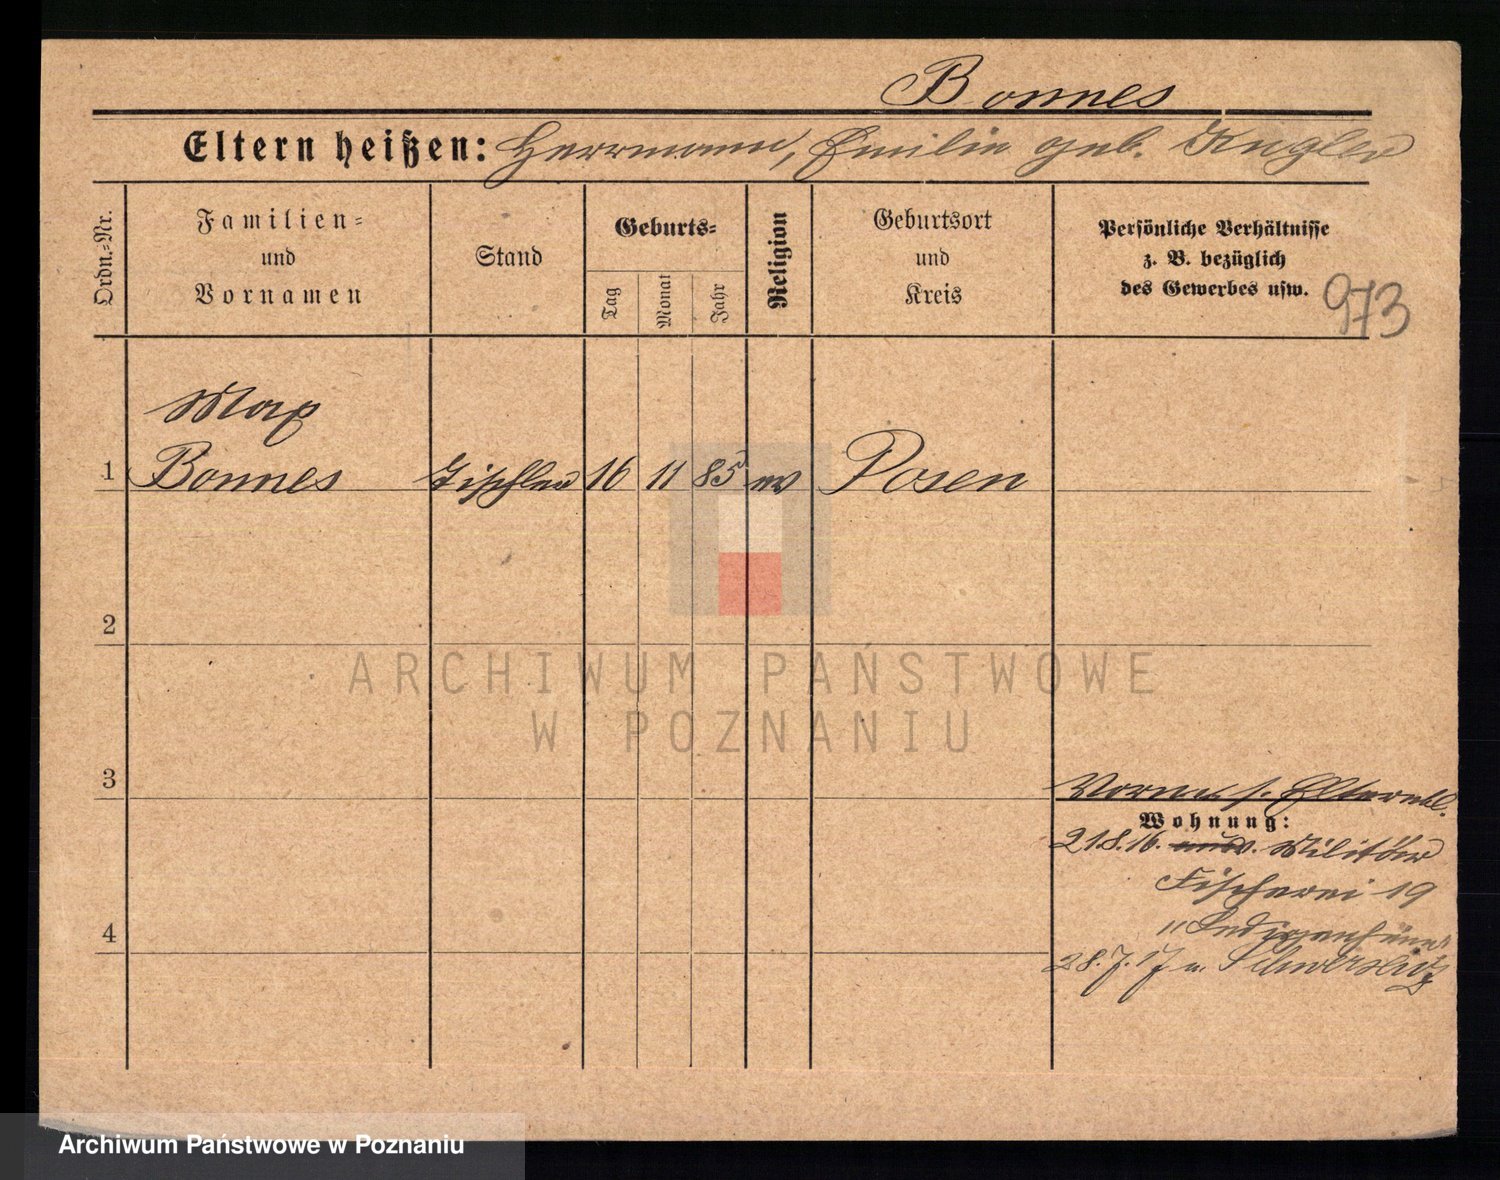 Bonnes
Eltern heißen: Herrmann, Emilie geb. Kugler
Ordn.=Nr.
Familien=
und
Vornamen
Stand
Geburts=
Tag
Monat
Jahr
Religion
Geburtsort
und
Kreis
Persönliche Verhältnisse
z. B. bezüglich
des Gewerbes usw.
973
Max
1 Bonnes Tischler 16 11 85 ev Posen
2
ARCHIWUM PAŃSTWOWE
W POZNANIU
3
Vorw. s. Elternbl.
Wohnung:
21.8.16. v. Militär
Fischerei 19
4
28.7.17 n. Schwersenz
Archiwum Państwowe w Poznaniu